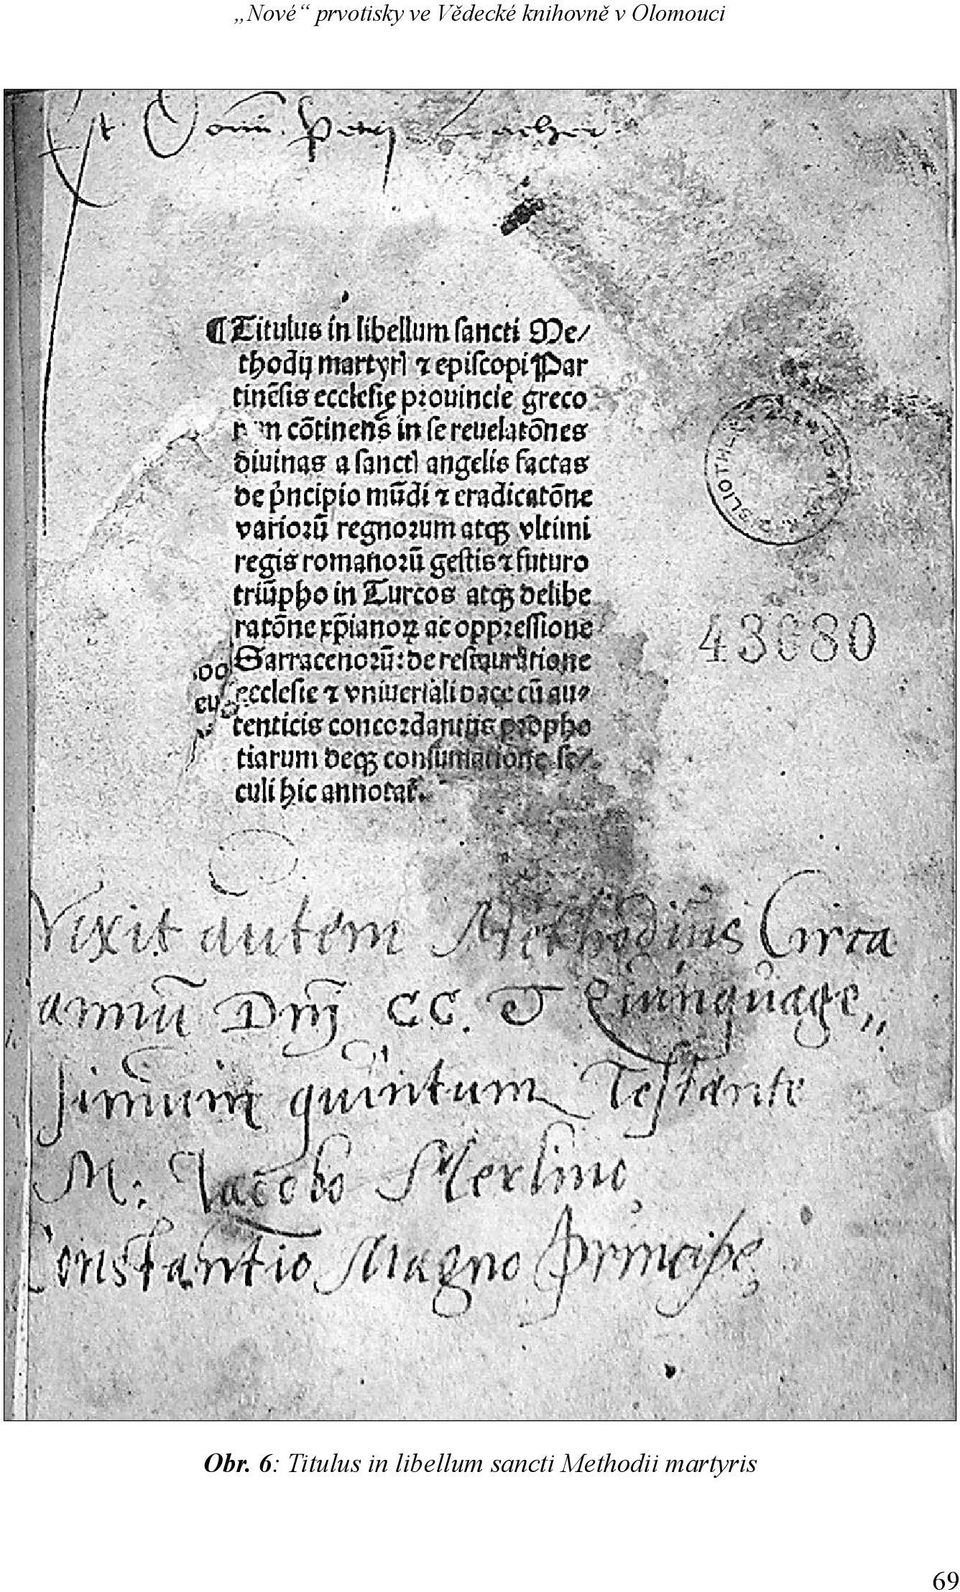 „Nové“ prvotisky ve Vědecké knihovně v Olomouci
¶Titulus in libellum sancti Me/
thodij martyrꝭ ⁊ episcopi Par
tinēsis ecclesię prouincie greco
cōtinens in se reuelatōnes
diuinas a sanctꝭ angelis factas
de pͥncipio mūdi ⁊ eradicatōne
varioꝛū regnoꝛum atqꝫ vltimi
regis romanoꝛū gestis ⁊ futuro
triūpho in Turcos atqꝫ delibe
ratōne xp̄ianoꝝ ac oppꝛessione
Sarracenoꝛū: de restauratione
ecclesie ⁊ vniuersali pace cū au/
tenticis concoꝛdantijs pꝛophe
tiarum deqꝫ consumatione se/
culi hic annotat̄.
43680
Vixit autem Methodius Circa
annū Dnj CC. & Quinquage,,
simum quintum Testante
M. Jacobo Merlino,
Constantio Magno Principe,
Obr. 6: Titulus in libellum sancti Methodii martyris
69